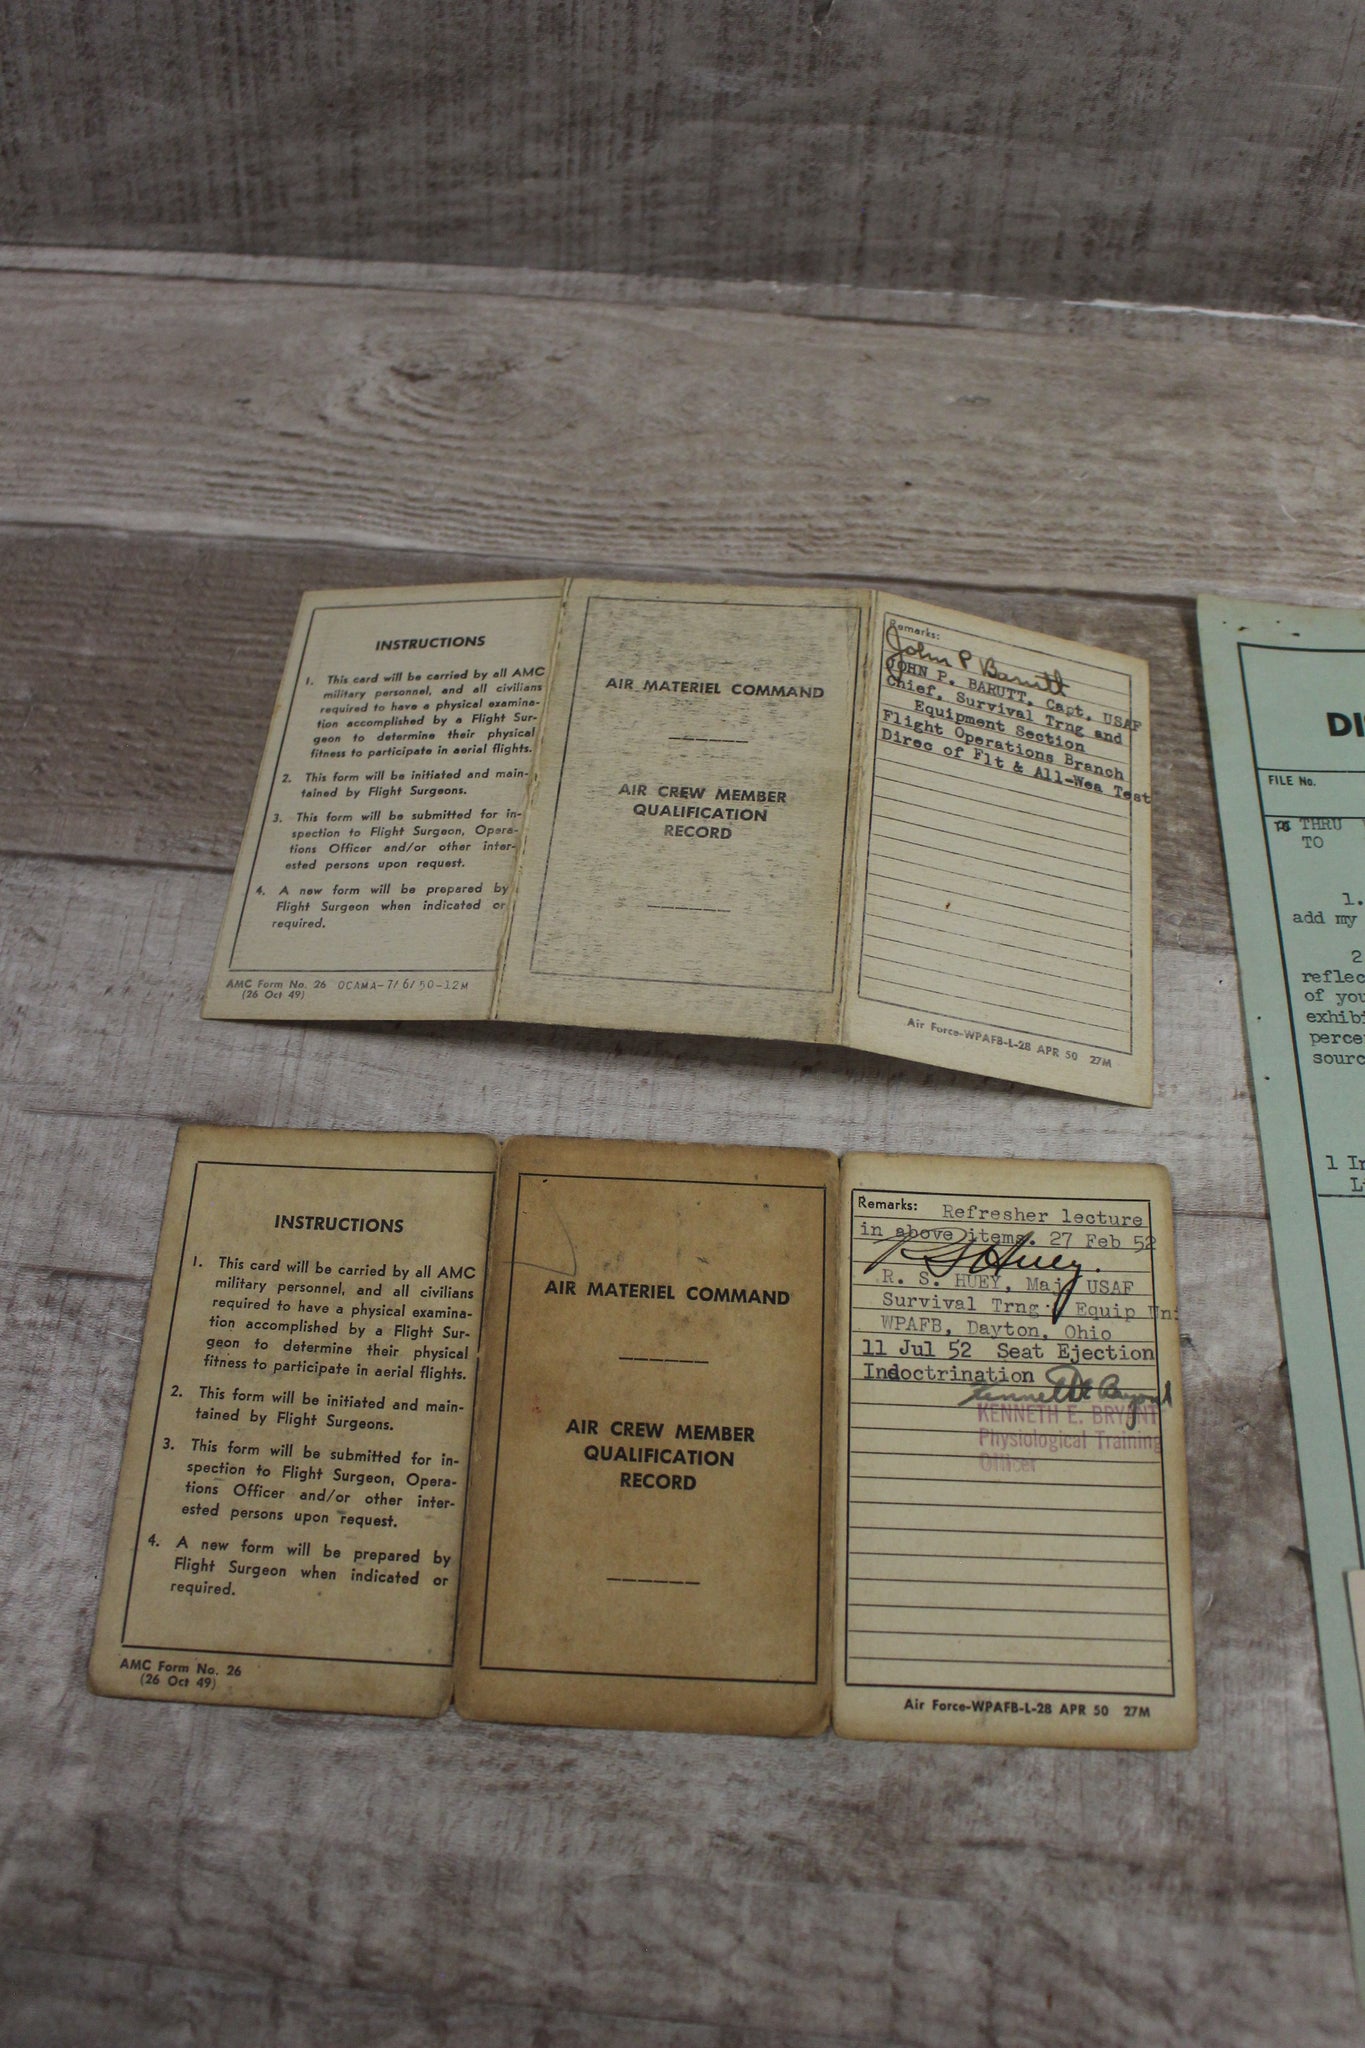 INSTRUCTIONS
1. This card will be carried by all AMC
military personnel, and all civilians
required to have a physical examina-
tion accomplished by a Flight Sur-
geon to determine their physical
fitness to participate in aerial flights.
2. This form will be initiated and main-
tained by Flight Surgeons.
3. This form will be submitted for in-
spection to Flight Surgeon, Opera-
tions Officer and/or other inter-
ested persons upon request.
4. A new form will be prepared by
Flight Surgeon when indicated or
required.
AMC Form No. 26 OCAMA-7/6/50-12M
(26 Oct 49)
AIR MATERIEL COMMAND
AIR CREW MEMBER
QUALIFICATION
RECORD
Remarks:
John P Barutt
JOHN P. BARUTT, Capt, USAF
Chief, Survival Trng and
Equipment Section
Flight Operations Branch
Direc of Flt & All-Wea Test
Air Force-WPAFB-L-28 APR 50 27M
INSTRUCTIONS
1. This card will be carried by all AMC
military personnel, and all civilians
required to have a physical examina-
tion accomplished by a Flight Sur-
geon to determine their physical
fitness to participate in aerial flights.
2. This form will be initiated and main-
tained by Flight Surgeons.
3. This form will be submitted for in-
spection to Flight Surgeon, Opera-
tions Officer and/or other inter-
ested persons upon request.
4. A new form will be prepared by
Flight Surgeon when indicated or
required.
AMC Form No. 26
(26 Oct 49)
AIR MATERIEL COMMAND
AIR CREW MEMBER
QUALIFICATION
RECORD
Remarks: Refresher lecture
in above items. 27 Feb 52
R S Huey.
R. S. HUEY, Maj USAF
Survival Trng & Equip Un
WPAFB, Dayton, Ohio
11 Jul 52 Seat Ejection
Indoctrination
Kenneth E Bryant
KENNETH E. BRYANT
Physiological Training
Officer
Air Force-WPAFB-L-28 APR 50 27M
DI
FILE No.
THRU
TO
1.
add my
2
reflec
of you
exhibi
perce
sourc
1 In
L